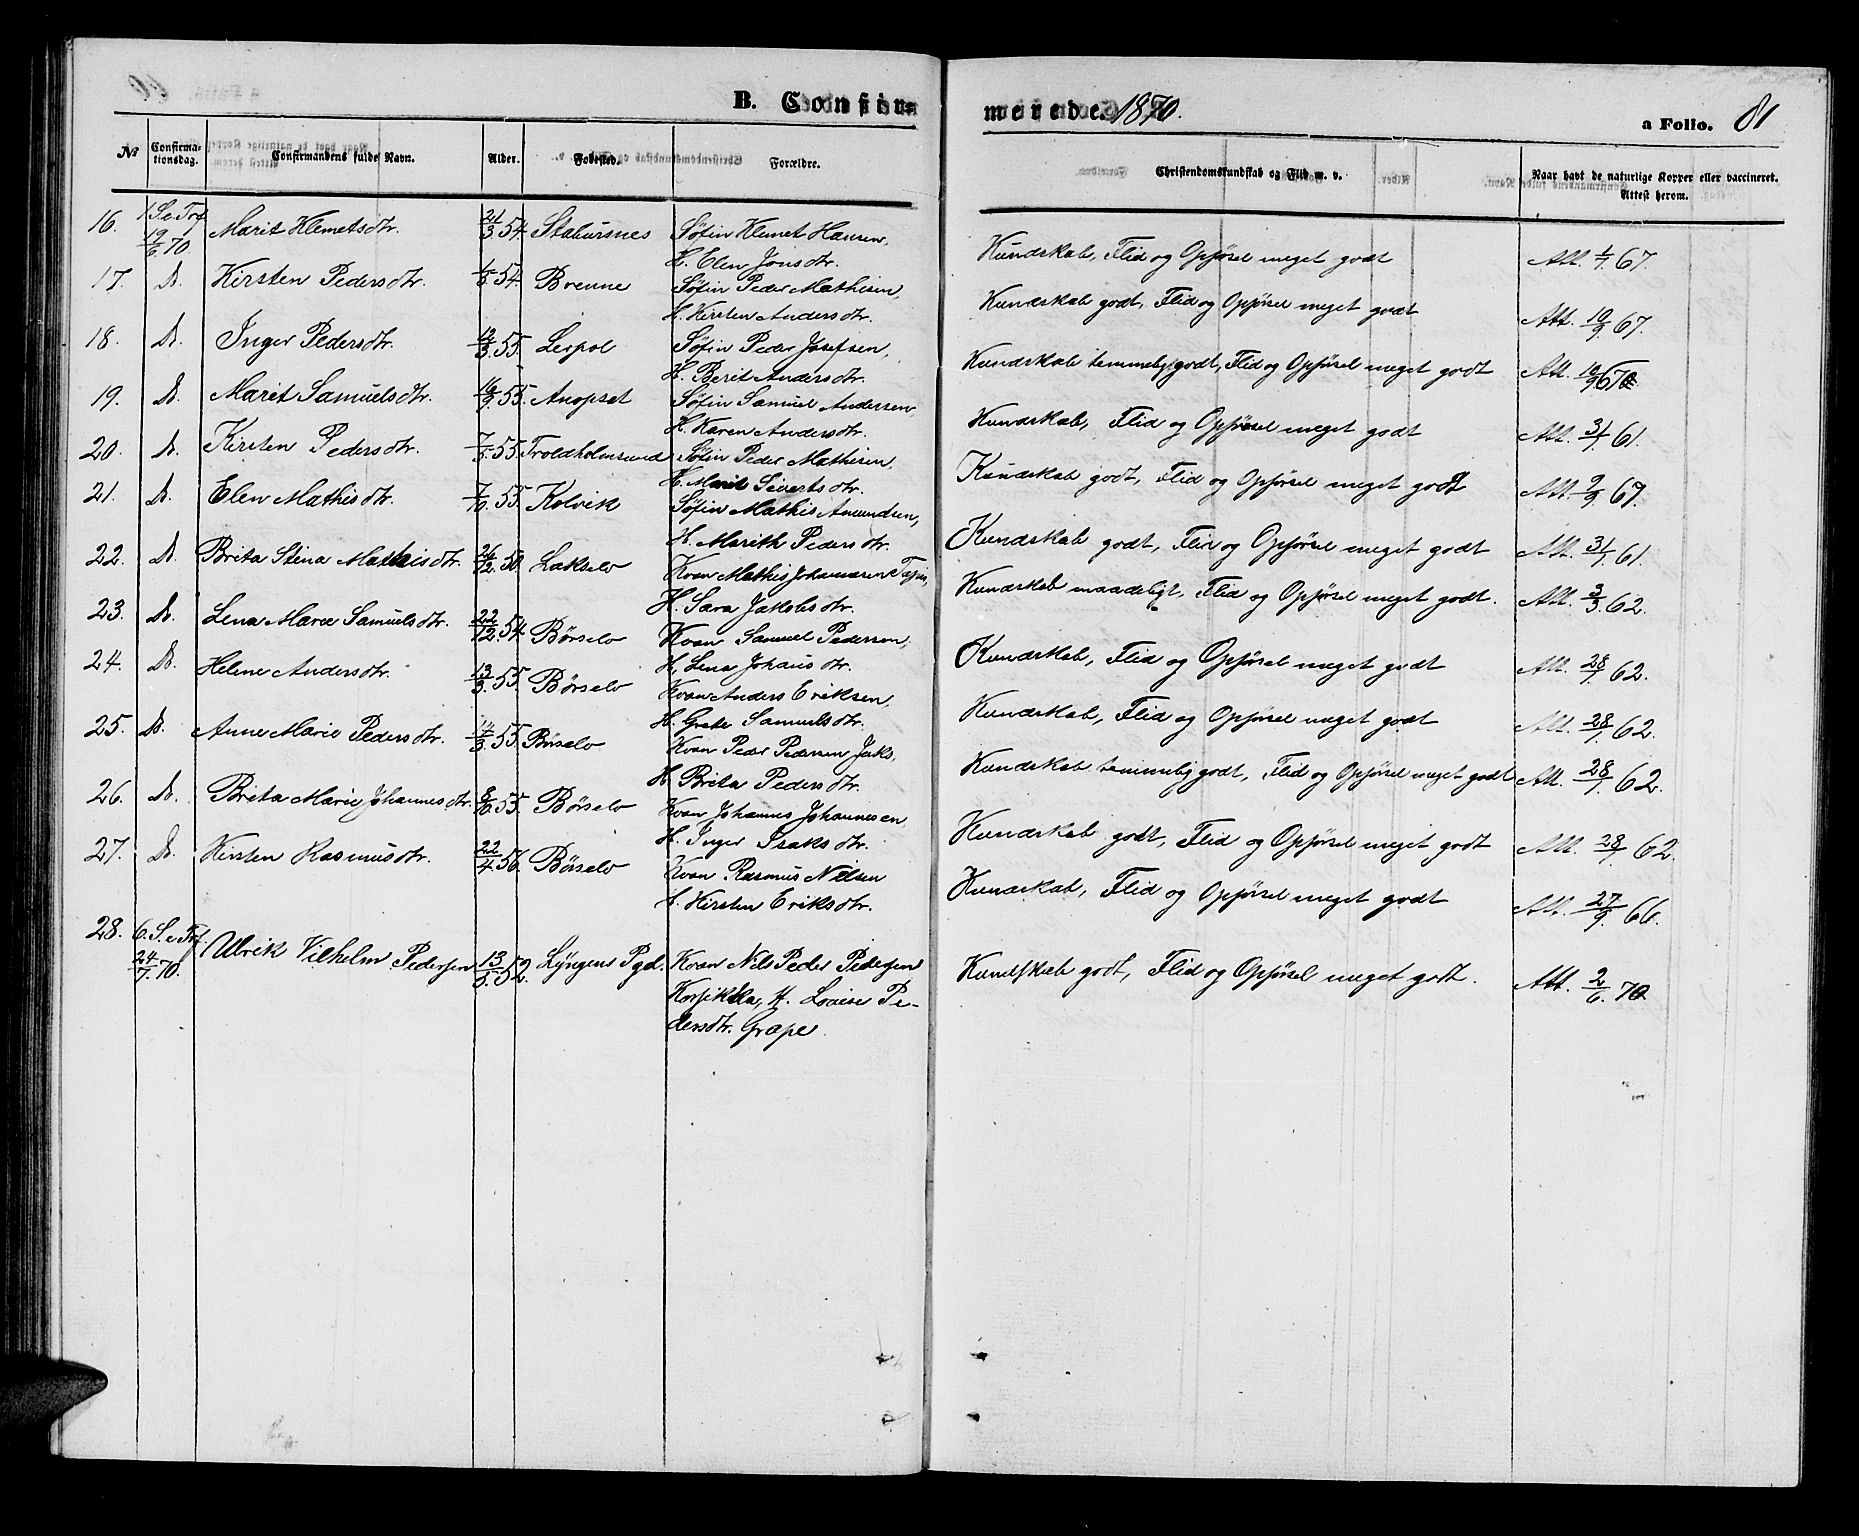 B. Confir=
merede. 1870.
a Folio. 81
No
Confirma-
tionsdag.
Confirmandens fulde Navn.
Alder.
Fødested.
Forældre.
Christendomskundskab og Flid m. v.
Naar havt de naturlige Kopper eller vaccineret.
Attest herom.
16. 1 S. e Tref 19/6 70. Marit Klemetsdtr. 21/3 54. Stabursnes Søfin Klemet Hansen,
H. Elen Jonsdtr. Kundskab, Flid og Opførsel meget godt Att. 1/7 67.
17. D. Kirsten Pedersdtr. 1/5 54. Brenne Søfin Peder Mathisen,
H. Kirsten Andersdtr. Kundskab godt, Flid og Opførsel meget godt Att. 19/9 67.
18. D. Inger Pedersdtr. 55. Leipol Søfin Peder Josefsen,
H. Berit Andersdtr. Kundskab temmelig godt, Flid og Opførsel meget godt Att.
19. D. Marit Samuelsdtr. 55. Anopset Søfin Samuel Andersen
H. Karen Andersdtr. Kundskab, Flid og Opførsel meget godt Att. 3/1 61.
20. D. Kirsten Pedersdtr. 7/5 55. Troldholmsund Søfin Peder Mathisen,
H. Marit Sivertsdtr. Kundskab godt, Flid og Opførsel meget godt Att. 9/9 69.
21. D. Elen Mathisdtr. 55. Kolvik Søfin Mathis Amundsen,
H. Marith Pedersdtr. Kundskab godt, Flid og Opførsel meget godt Att. 3/1 61.
22. D. Brita Stina Mathisdtr. 26/12 50. Lakselv Kvæn Mathis Johannesen
H. Sara Jakobsdtr. Kundskab maadeligt, Flid og Opførsel meget godt. Att. 3/3 62.
23. D. Lena Marie Samuelsdtr. 22/12 54. Børselv Kvæn Samuel Pedersen,
H. Lena Johansdtr. Kundskab, Flid og Opførsel meget godt Att. 28/1 62.
24. D. Helene Andersdtr. 13/3 55. Børselv Kvæn Anders Eriksen
H. Grete Samuelsdtr. Kundskab, Flid og Opførsel meget godt Att. 28/1 62.
25. D. Anne Marie Pedersdtr. 55. Børselv Kvæn Peder Pedersen Jaks,
H. Brita Pedersdtr. Kundskab temmelig godt, Flid og Opførsel meget godt Att. 28/1 62.
26. D. Brita Marie Johannesdtr. 8/6 55. Børselv Kvæn Johannes Johannesen,
H. Inger Isaksdtr. Kundskab godt, Flid og Opførsel meget godt Att. 28/1 62.
27. D. Kirsten Rasmusdtr. 22/4 56. Børselv Kvæn Rasmus Nilsen
H. Kirsten Eriksdtr. Kundskab, Flid og Opførsel meget godt Att. 27/9 66.
28. 6. S. e Tref 24/7 70. Ulrik Vilhelm Pedersen 52. Lyngens Pgd. Kvæn Nils Peder Pedersen
Korsikka, H. Lovise Pe-
dersdtr. Grape. Kundskab godt, Flid og Opførsel meget godt. Att. 2/6 70